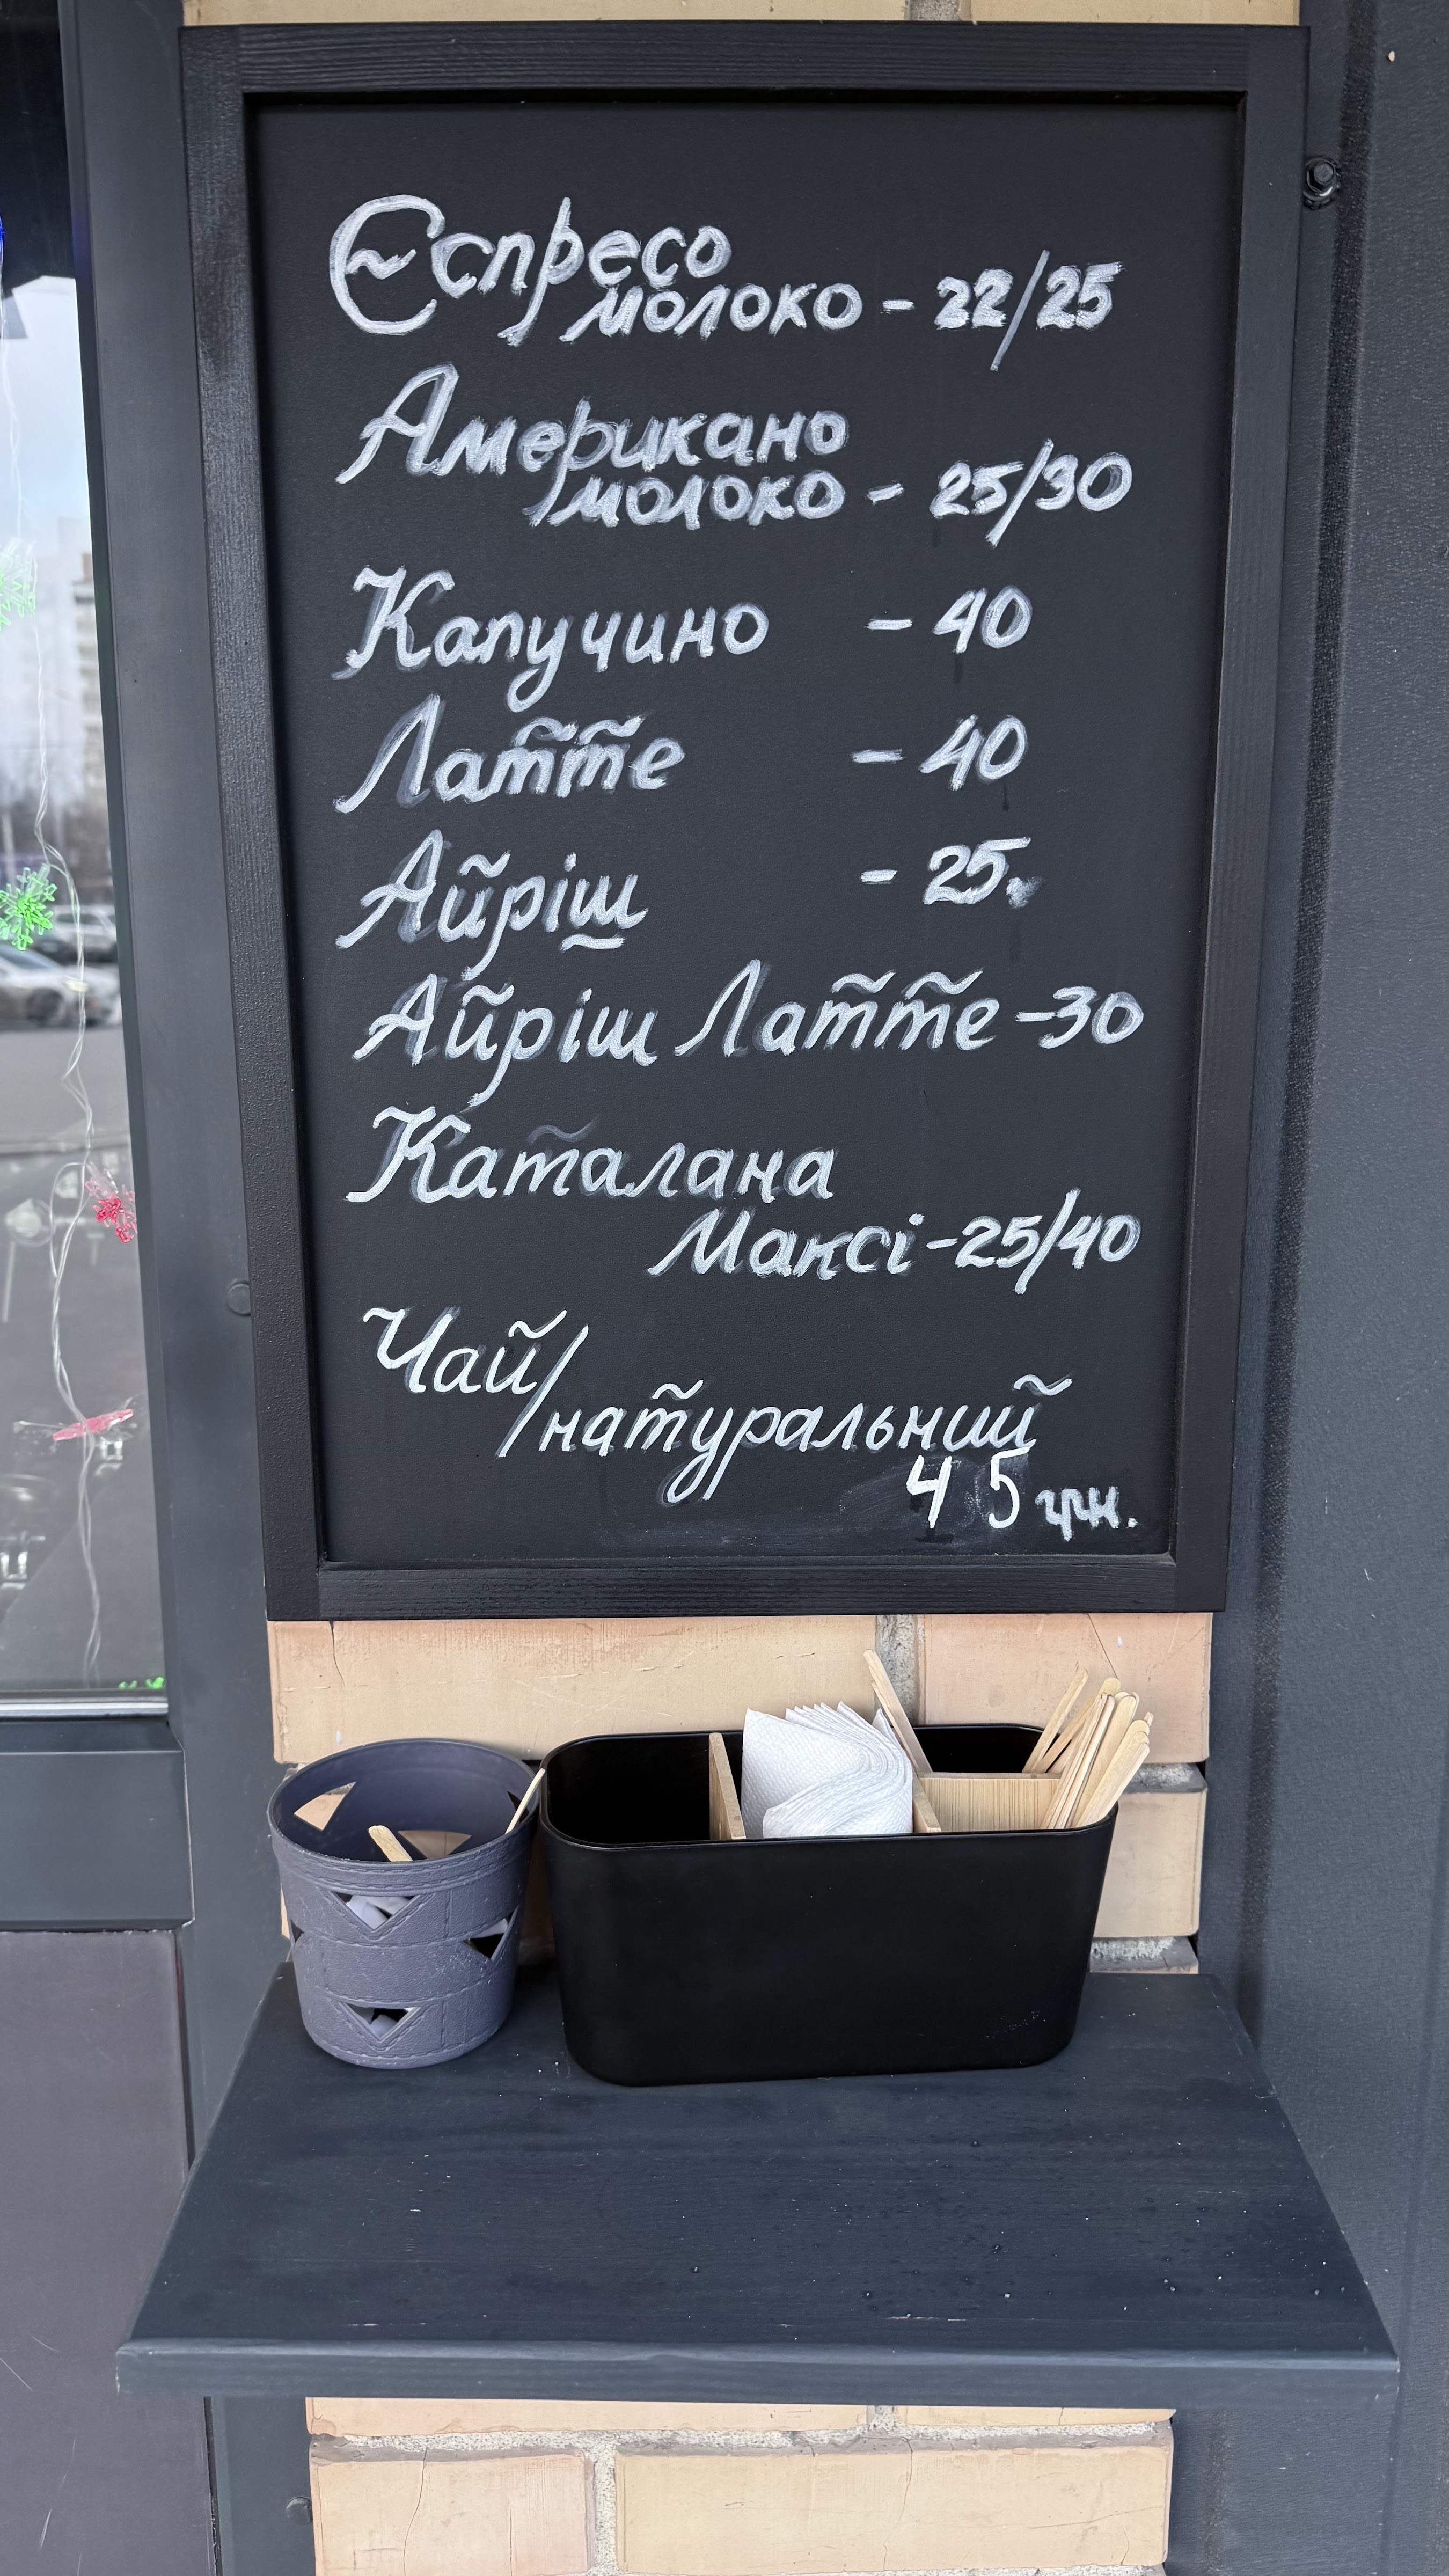 Єспресо
молоко - 22/25
Американо
молоко - 25/30
Капучино - 40
Латте - 40
Айріш - 25.
Айріш Латте - 30
Каталана
Максі - 25/40
Чай/
натуральний
45 грн.